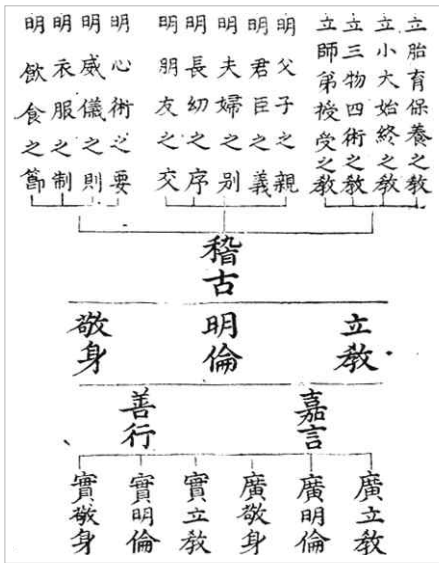 立胎育保養之敎
立小大始終之敎
立三物四術之敎
立師弟授受之敎
明父子之親
明君臣之義
明夫婦之別
明長幼之序
明朋友之交
明心術之要
明威儀之則
明衣服之制
明飮食之節
稽古
立敎
明倫
敬身
嘉言
善行
廣立敎
廣明倫
廣敬身
實立敎
實明倫
實敬身